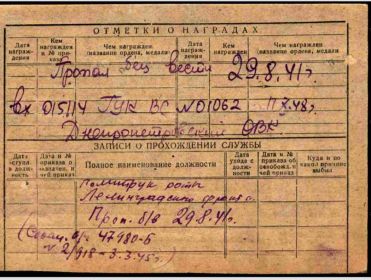 ОТМЕТКИ О НАГРАДАХ
Дата награждения Кем награжден и № приказа Чем награжден (название ордена, медали Дата награждения Кем награжден Чем награжден (название ордена, медали
Пропал без вести 29.8.41г.
вх 015114 ГУК ВС №01062 48г.
Днепропетровский ОВК
ЗАПИСИ О ПРОХОЖДЕНИИ СЛУЖБЫ
Дата и № приказа Полное наименование должности Дата ухода с должности Дата и № приказа об Куда и по какой причине выбыл
Политрук роты
Ленинградского фронта
Проп. б/в 29.8.41г.
47980-б
3.3.45г.)